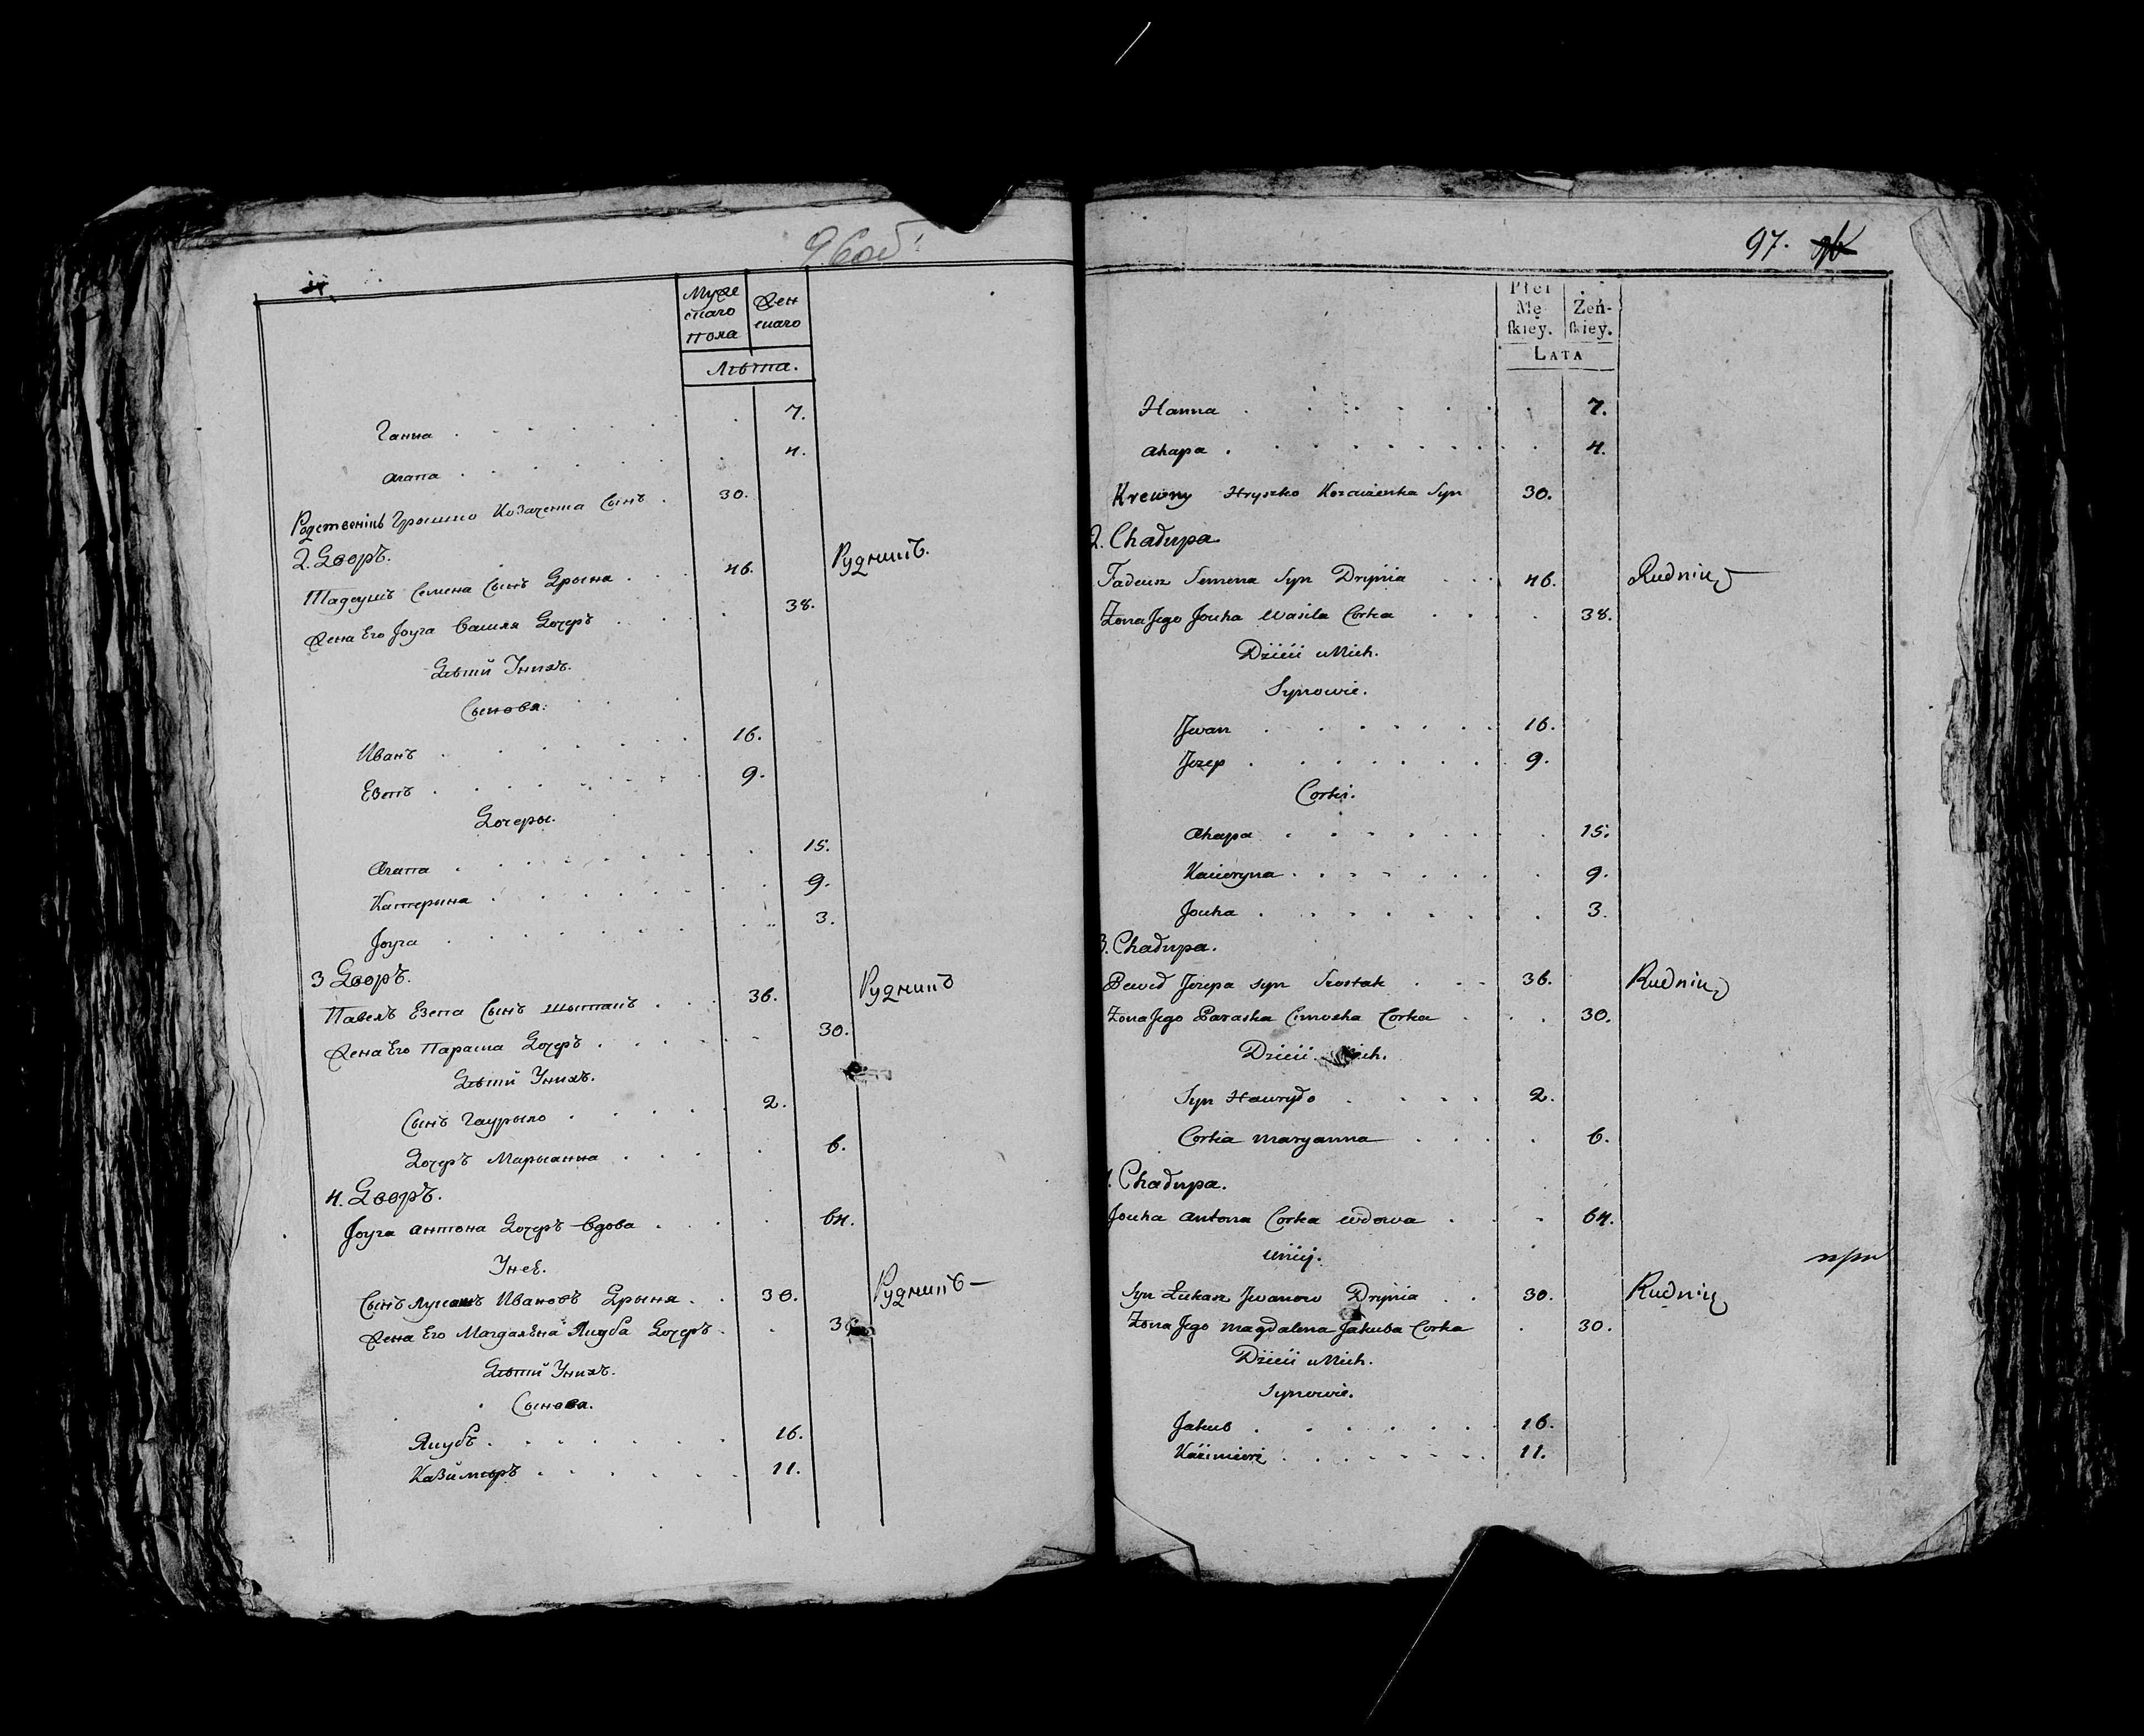 96 об.
Муже
скаго
пола
Жен
скаго
Лѣта.
Ганна 7.
Агапа 4.
Родственікъ Грышко Козаченка Сынъ 30.
2. Дворъ.
Тадеушъ Семена Сынъ Дрыня 46. Рудникъ.
Жена Его Јоуга Василя Дочерь 38.
Дѣтй Унихъ.
Сынова.
Иванъ 16.
Езепъ 9.
Дочеры.
Агапа 15.
Катерына 9.
Јоуга 3.
3 Дворъ.
Павелъ Езепа Сынъ 36. Рудникъ
Жена Его Параска Дочерь 30.
Дѣтй Унихъ.
Сынъ Гаурыло 2.
Дочерь Марыанна 6.
4. Дворъ.
Јоуга антона Дочерь вдова 64.
Унеё.
Сынъ Лукашъ Ивановъ Дрыня 30. Рудникъ
Жена Его Магдалѣна Якуба Дочерь
Дѣтй Унихъ.
Сынова.
Якубъ 16.
Казймеръ 11.
97.
Płci
Mę-
ſkiey.
Żeń-
ſkiey.
LATA
Hanna 7.
Ahapa 4.
Krewny Hryszko Kozaczenka Syn 30.
2. Chałupa
Tadeusz Semena Syn Drynia 46. Rudnik
Zona Jego Jouha Wasila Corka 38.
Dzieci u Nich.
Synowie.
Jwan 16.
Jezep 9.
Corki.
Ahapa 15.
Kateryna 9.
Jouha 3.
3. Chałupa.
Jezepa syn Szostak 36. Rudnik
Zona Jego Paraska Cimoszka Corka 30.
Dzieci Nich.
Syn Hauryło 2.
Corka Maryanna 6.
Chałupa.
Jouha Antona Corka wdowa 64.
u niej.
Syn Łukasz Jwanow Drynia 30. Rudnik
Zona Jego Magdalena Jakuba Corka 30.
Dzieci u Nich.
Synowie.
Jakub 16.
Kazimierz 11.